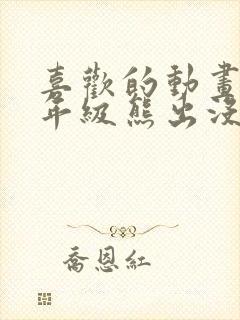 喜歡的動畫
年級熊出沒
喬恩紅